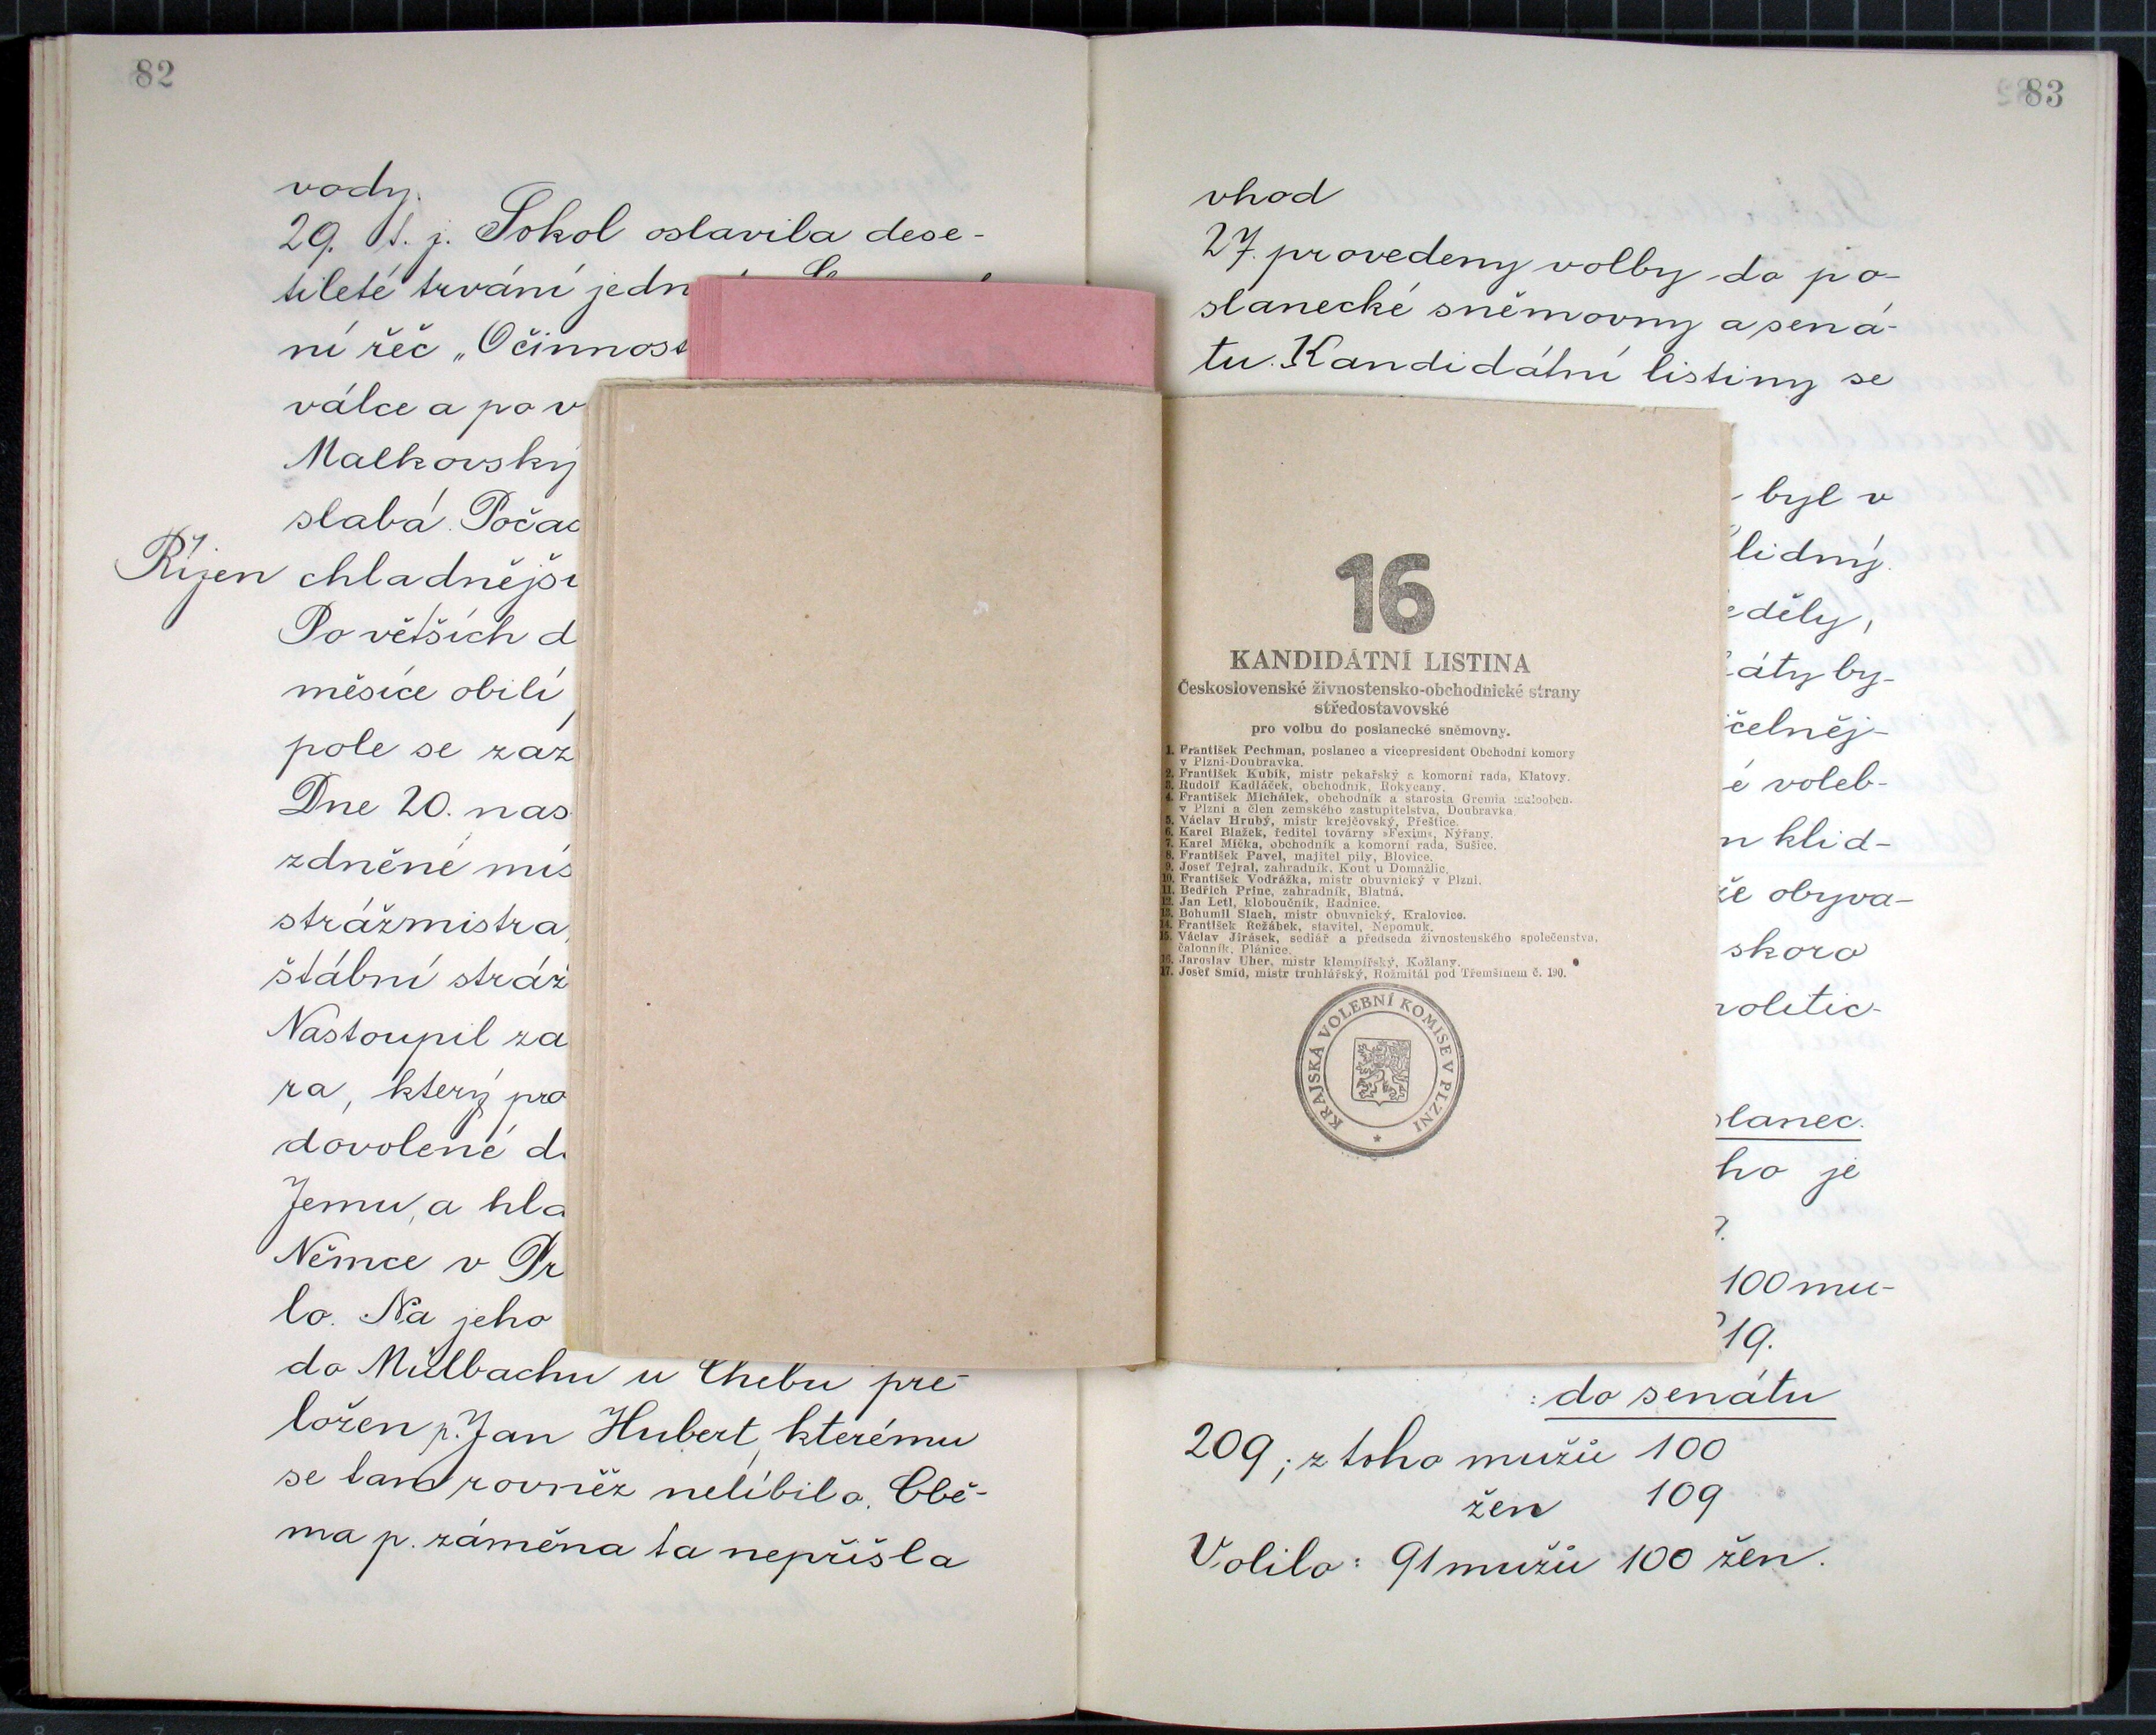 82
vody.
29. t. j. Sokol oslavila dese-
tileté trvání jedn
ní řeč „Očinnost
válce a po v
Malkovský
slabá. Počas
Říjen chladnější
Po větších d
měsíce obilí
pole se zaz
Dne 20. nas
zdněné mís
strážmistra,
štábní stráž
Nastoupil za
ra, který pro
dovolené d
Jemu, a hla
Němce v Pr
lo. Na jeho
do Mülbachu u Chebu pře-
ložen p. Jan Hubert, kterému
se tam rovněž nelíbilo. Obě-
ma p. záměna ta nepřišla
83
vhod
27. provedeny volby do po-
slanecké sněmovny a sená-
tu. Kandidátní listiny se
byl v
lidný.
eděly,
áty by-
čelněj-
é voleb-
m klid-
že obyva-
skoro
politic-
slanec.
ho je
100 mu-
19.
: do senátu
209; z toho mužů 100
žen 109
Volilo: 91 mužů 100 žen.
16
KANDIDÁTNÍ LISTINA
Československé živnostensko-obchodnické strany
středostavovské
pro volbu do poslanecké sněmovny.
1. František Pechman, poslanec a vicepresident Obchodní komory
v Plzni-Doubravka.
2. František Kubík, mistr pekařský a komorní rada, Klatovy.
3. Rudolf Kadláček, obchodník, Rokycany.
4. František Michálek, obchodník a starosta Gremia maloobch.
v Plzni a člen zemského zastupitelstva, Doubravka.
5. Václav Hrubý, mistr krejčovský, Přeštice.
6. Karel Blažek, ředitel továrny »Fexim«, Nýřany.
7. Karel Mička, obchodník a komorní rada, Sušice.
8. František Pavel, majitel pily, Blovice.
9. Josef Tejral, zahradník, Kout u Domažlic.
10. František Vodrážka, mistr obuvnický v Plzni.
11. Bedřich Princ, zahradník, Blatná.
12. Jan Letl, kloboučník, Radnice.
13. Bohumil Slach, mistr obuvnický, Kralovice.
14. František Režábek, stavitel, Nepomuk.
15. Václav Jirásek, sedlář a předseda živnostenského společenstva,
čalouník, Plánice.
16. Jaroslav Uher, mistr klempířský, Kožlany.
17. Josef Šmíd, mistr truhlářský, Rožmitál pod Třemšínem č. 190.
KRAJSKÁ VOLEBNÍ KOMISE V PLZNI